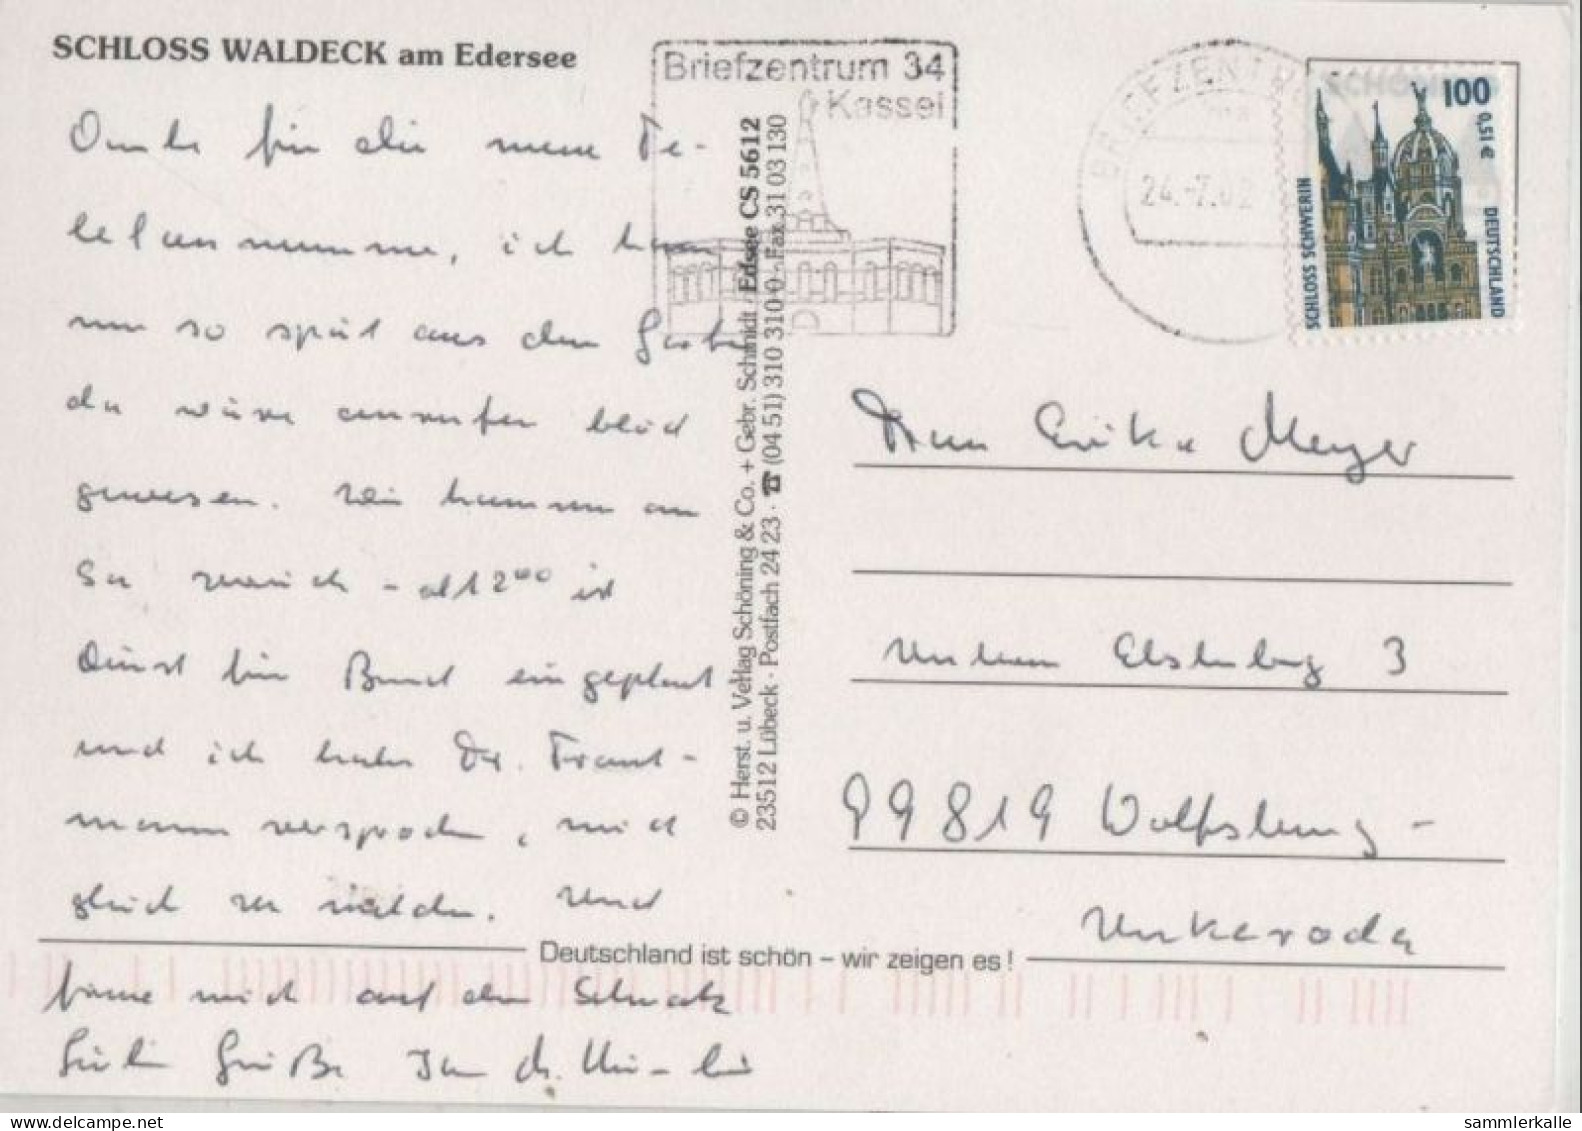 SCHLOSS WALDECK am Edersee
Danke für die neue Te-
lefonnummer, ich kam
nur so spät aus dem Garten
da wäre anrufen blöd
gewesen. Wir kommen am
So zurück - ab 12 00 ist
Dienst für Bund eingeplant
und ich habe Dr. Traut-
mann versprochen, mich
gleich zu melden. Und
freue mich auf den Schwatz
Grüße
Briefzentrum 34
Kassel
BRIEFZENTRUM
24.-7.02
100
0,51 €
SCHLOSS SCHWERIN
DEUTSCHLAND
© Herst. u. Verlag Schöning & Co. + Gebr. Schmidt · Edsee CS 5612
23512 Lübeck · Postfach 24 23 · ☎ (04 51) 310 310-0 · Fax 31 03 130
Frau Erika Meyer
Unterm Elsterberg 3
99819 Wolfsburg-
Unkeroda
Deutschland ist schön – wir zeigen es!
sammlerkalle